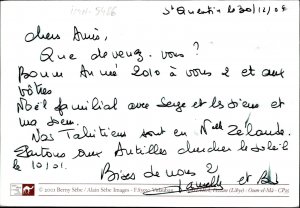 St Quentin le 30/12/09
chers Amis,
Que devenez-vous?
Bonne Année 2010 à vous 2 et aux
vôtres
Noël familial avec Serge et les siens et
ma soeur.
Nos Tahitiens sont en Nlle Zélande.
Partons aux Antilles chercher le soleil
le 10/01.
Bises de nous 2
et
© 2010 Berny Sèbe / Alain Sèbe Images - F.83690
(Libye) CP25